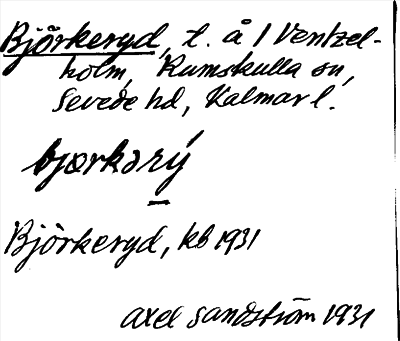 Björkeryd, t. å / Ventzel-
holm, Rumskulla sn,
Sevede hd, Kalmar l.
bjærkərý
Björkeryd, kb 1931
Axel Sandström 1931